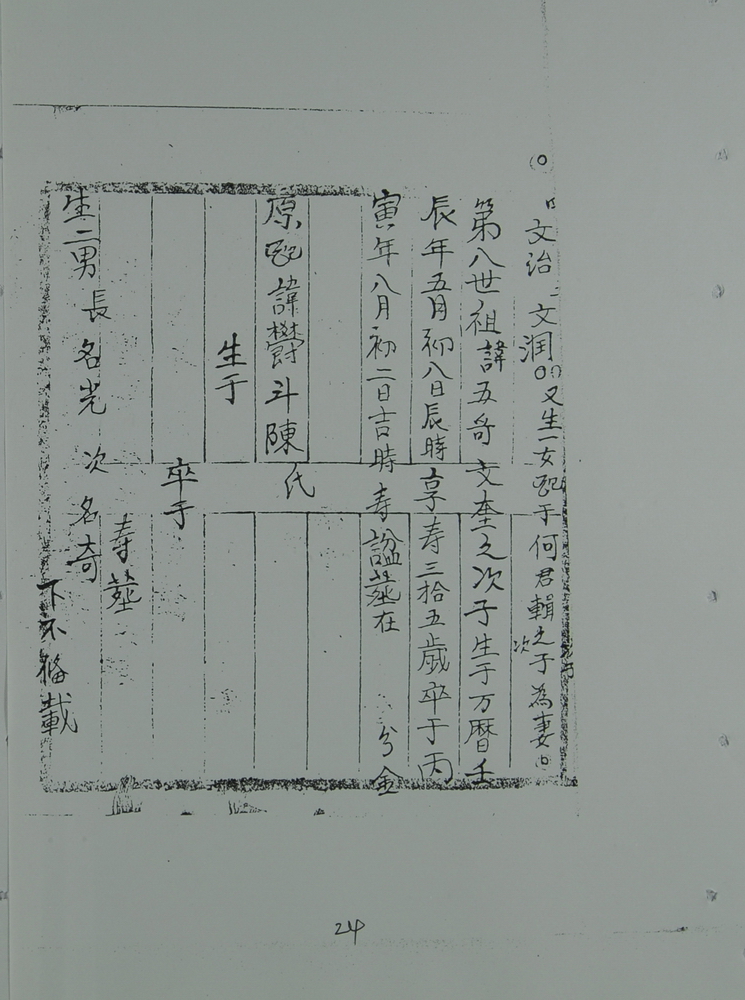 文治 文润 又生一女配于何君輯之次子為妻
第八世祖諱五奇文奎之次子生于万曆壬
辰年五月初八日辰時享寿三拾五歲卒于丙
寅年八月初二日吉時寿謚塟在 兮金
原配諱欝斗陳氏
生于
卒于
寿塟
生二男長名光次名奇
下不俻載
24